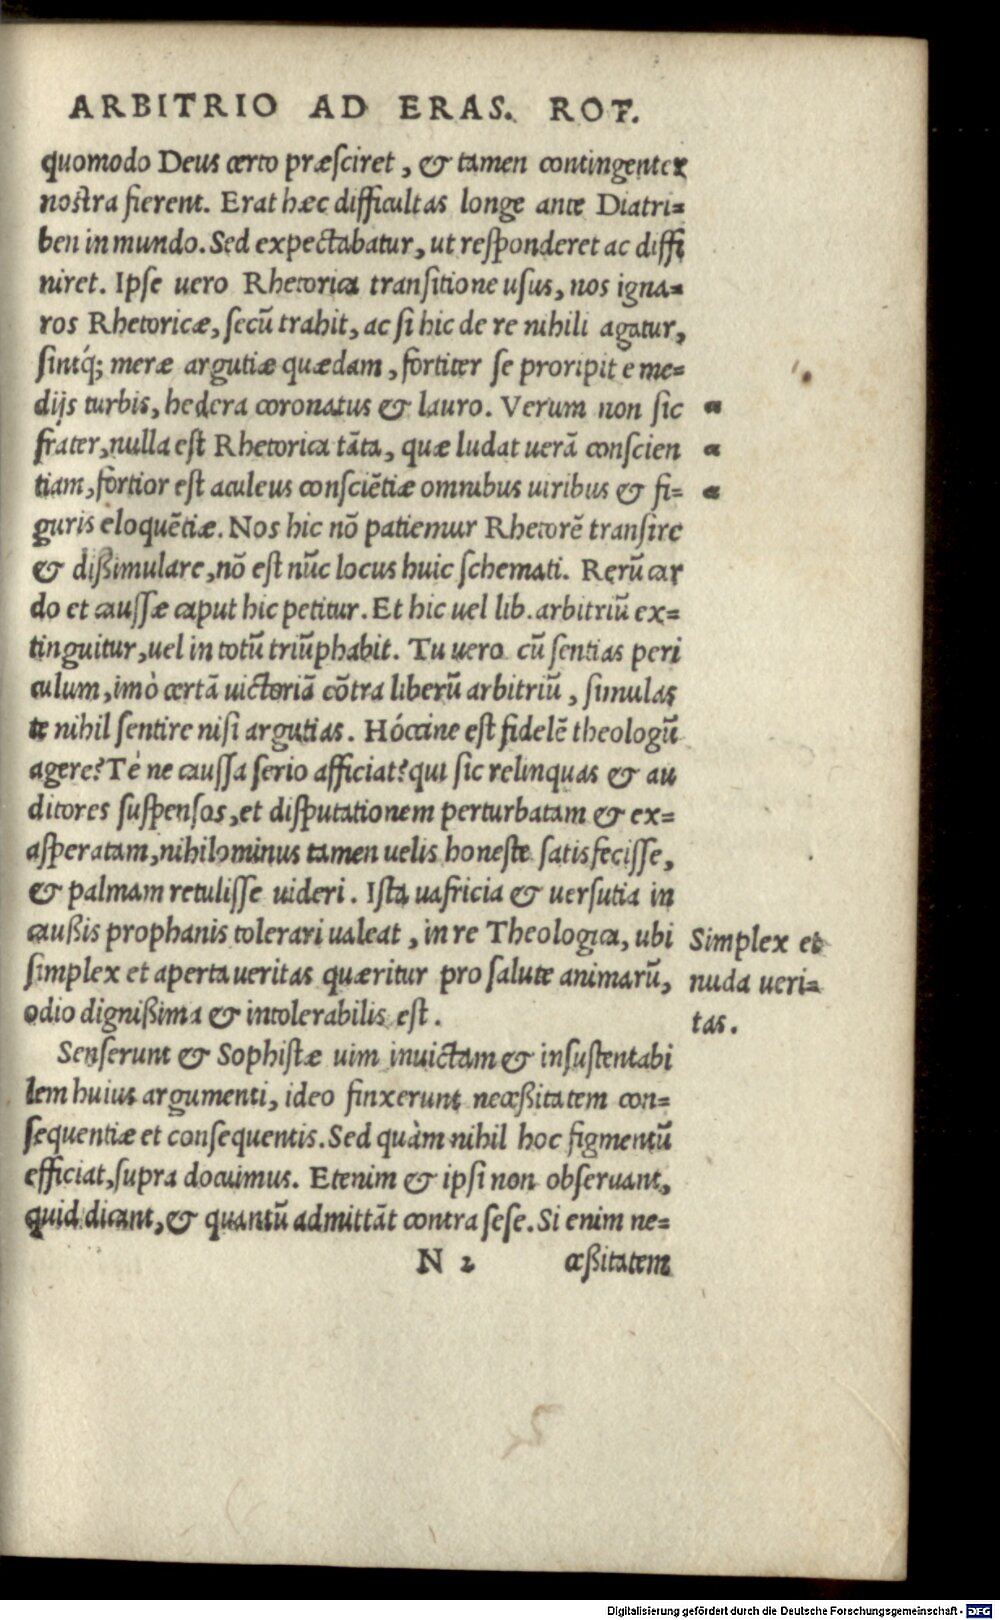 ARBITRIO AD ERAS. ROT.
quomodo Deus certo præsciret, & tamen contingenter
nostra fierent. Erat hæc difficultas longe ante Diatri=
ben in mundo. Sed expectabatur, ut responderet ac diffi
niret. Ipse uero Rhetorica transitione usus, nos igna=
ros Rhetoricæ, secū trahit, ac si hic de re nihili agatur,
sintq́; meræ argutiæ quædam, fortiter se proripit e me=
dijs turbis, hedera coronatus & lauro. Verum non sic
frater, nulla est Rhetorica tāta, quæ ludat uerā conscien
tiam, fortior est aculeus consciētiæ omnibus uiribus & fi=
guris eloquētiæ. Nos hic nō patiemur Rhetorē transire
& dißimulare, nō est nūc locus huic schemati. Rerū car
do et caussæ caput hic petitur. Et hic uel lib. arbitriū ex=
tinguitur, uel in totū triūphabit. Tu uero cū sentias peri
culum, imò certā uictoriā cōtra liberū arbitriū, simulas
te nihil sentire nisi argutias. Hóccine est fidelē theologū
agere? Té ne caussa serio afficiat? qui sic relinquas & au
ditores suspensos, et disputationem perturbatam & ex=
asperatam, nihilominus tamen uelis honeste satisfecisse,
& palmam retulisse uideri. Ista uafricia & uersutia in
caußis prophanis tolerari ualeat, in re Theologica, ubi
simplex et aperta ueritas quæritur pro salute animarū,
odio dignißima & intolerabilis est.
Simplex et
nuda ueri=
tas.
Senserunt & Sophistæ uim inuictam & insustentabi
lem huius argumenti, ideo finxerunt neceßitatem con=
sequentiæ et consequentis. Sed quàm nihil hoc figmentū
efficiat, supra docuimus. Etenim & ipsi non obseruant,
quid dicant, & quantū admittāt contra sese. Si enim ne=
N 2 ceßitatem
Digitalisierung gefördert durch die Deutsche Forschungsgemeinschaft - DFG